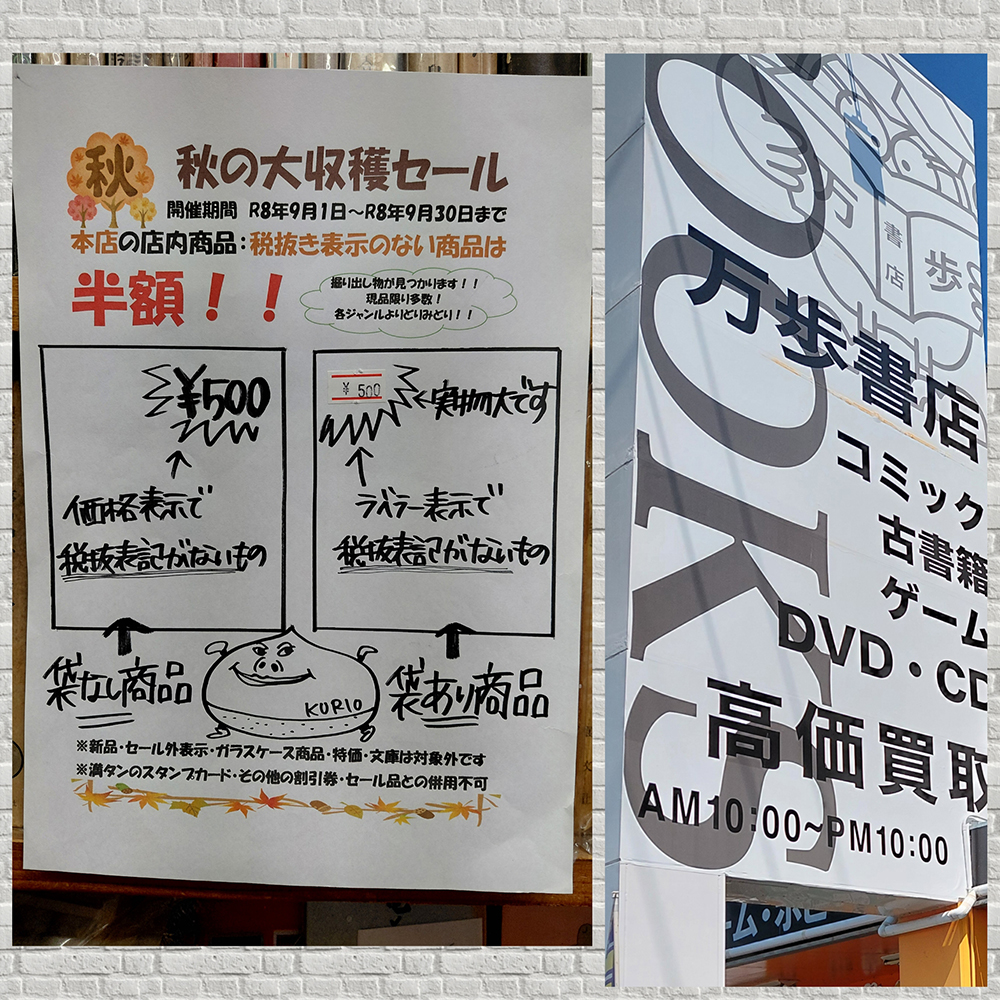 秋 秋の大収穫セール
開催期間 R8年9月1日〜R8年9月30日まで
本店の店内商品:税抜き表示のない商品は
半額!!
掘り出し物が見つかります!!
現品限り多数!
各ジャンルよりどりみどり!!
¥500
↑
価格表示で
税抜表記がないもの
¥ 500
←実物大です
↑
ラベラー表示で
税抜表記がないもの
袋なし商品
KURIO
袋あり商品
※新品・セール外表示・ガラスケース商品・特価・文庫は対象外です
※満タンのスタンプカード・その他の割引券・セール品との併用不可
OOKS
万
書店
歩
万歩書店
コミック
古書籍
ゲーム
DVD・CD
高価買取
AM10:00~PM10:00
ーム・ホビ